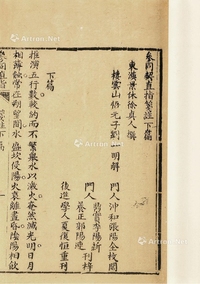 參同契直指箋註下篇
東漢景休徐真人撰
棲雲山悟元子劉一明解
門人沖和張陽全校閱
門人
刊梓
後進學人夏復恆重刊
下篇
推演五行數較約而不繁舉水以激火奄然滅光明日月
相薄蝕常在朔望間水盛坎侵陽火衰離晝昏陰陽相飲